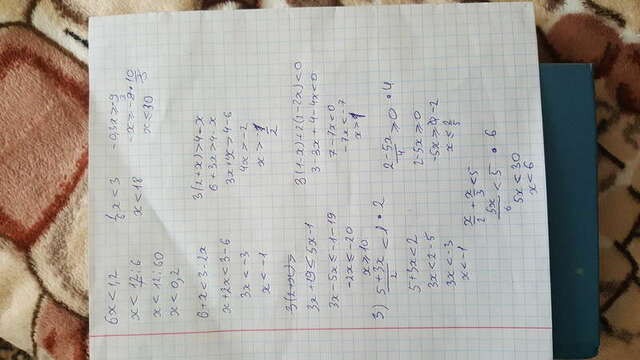 6x < 1,2
x < 12/1 : 6
x < 12 : 60
x < 0,2
1/6 x < 3
x < 18
-0,3x ≥ -9
-x ≥ -9 • 10/3
x ≤ 30
6+x < 3-2x
x+2x < 3-6
3x < -3
x < -1
3(2+x) > 4-x
6+3x > 4-x
3x+4x > 4-6
4x > -2
x > -1/2
3x+19 ≤ 5x-1
3x-5x ≤ -1-19
-2x ≤ -20
x ≥ 10
3(1-x)+2(1-2x) < 0
3-3x+4-4x < 0
7-7x < 0
-7x < -7
x > 1
3) (5+3x)/2 < 1 • 2
5+3x < 2
3x < 2-5
3x < -3
x < -1
(2-5x)/4 ≥ 0 • 4
2-5x ≥ 0
-5x ≥ -2
x ≤ 2/5
x/2 + x/3 < 5
5x/6 < 5 • 6
5x < 30
x < 6